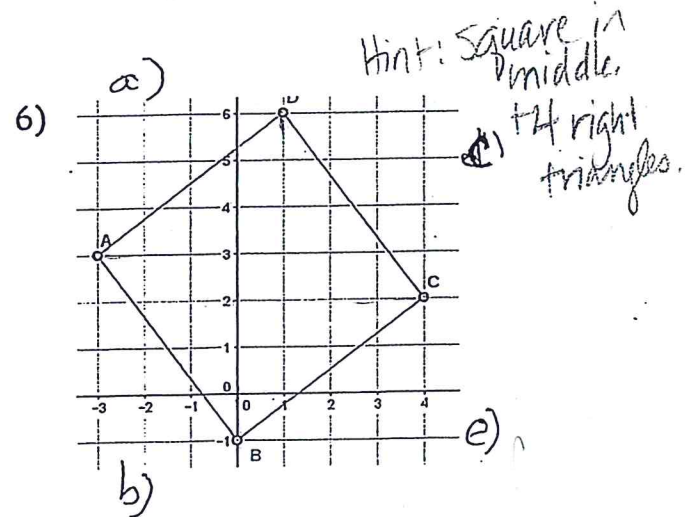 Hint: Square in
middle.
+4 right
triangles.
a)
6)
D
6
5
4
A
3
C
2
1
0
-3 -2 -1 0 1 2 3 4
-1
B
e)
b)